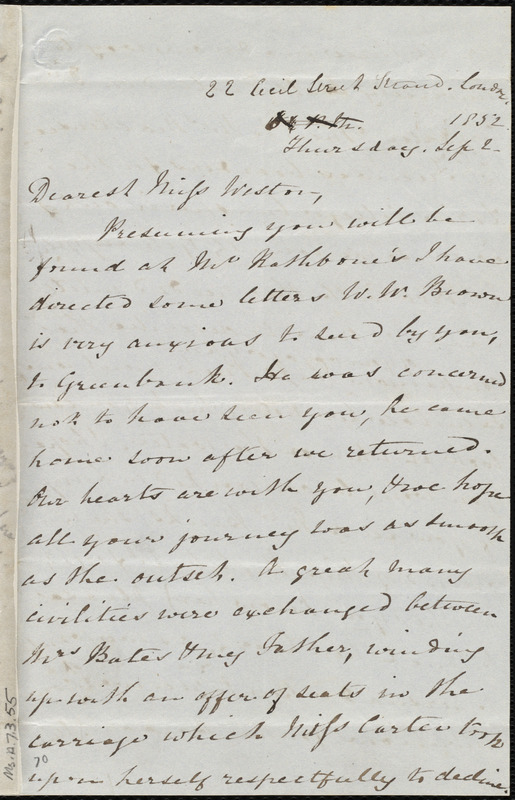 22 Cecil Street Strand. London.
1852.
Thursday. Sep 2-
Dearest Miss Weston,
Presuming you will be
found at Mr Rathbone's I have
directed some letters W. W. Brown
is very anxious to send by you,
to Greenbank. He was concerned
not to have seen you, he came
home soon after we returned.
Our hearts are with you, & we hope
all your journey was as smooth
as the outset. A great many
civilities were exchanged between
Mrs Bates & my Father, winding
up with an offer of seats in the
carriage which Miss Carter took
upon herself respectfully to decline.
70
Ms.A.7.3.55